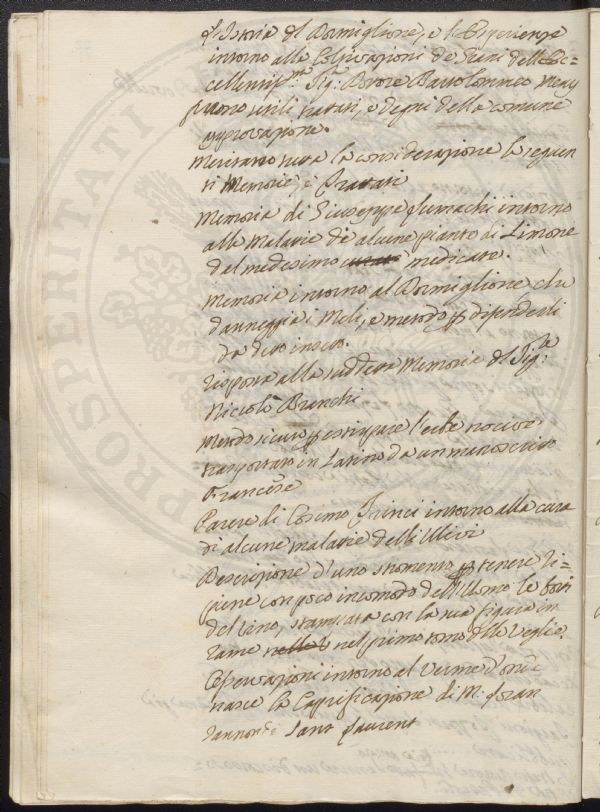 l'Istoria del Dormiglione, e le Esperienze
intorno alle Coltivazioni de Grani dell'Ec=
cellentiss.mo Sig.r Dottore Bartolommeo Mesny
furono utili, trattati, e degni della comune
approvazione.
Meritano tutta la considerazione le seguen
ti Memorie, e Trattati
Memoria di Giuseppe intorno
alle Malatie di alcune piante di Limone
del medesimo medicate.
Memoria intorno al Dormiglione che
danneggia i Meli, e metodo p difenderli
da d.to insetto.
Risposta alla suddetta Memoria del Sig.re
Niccolò Branchi
Metodo sicuro p estirpare l'erbe nocive,
trasportato in Latino da un manoscritto
Francese
Parere di Cosimo Trinci intorno alla cura
di alcune malatie delli Ulivi
Descrizione d'uno stromento p tenere ri=
piene con poco incomodo dell'Uomo le botti
del vino, stampata con la sua figura in
rame nel primo tomo delle Veglie.
Osservazioni intorno al Verme d'onde
nasce la Caprificazione di M.r
Sant Laurent
PROSPERITATI